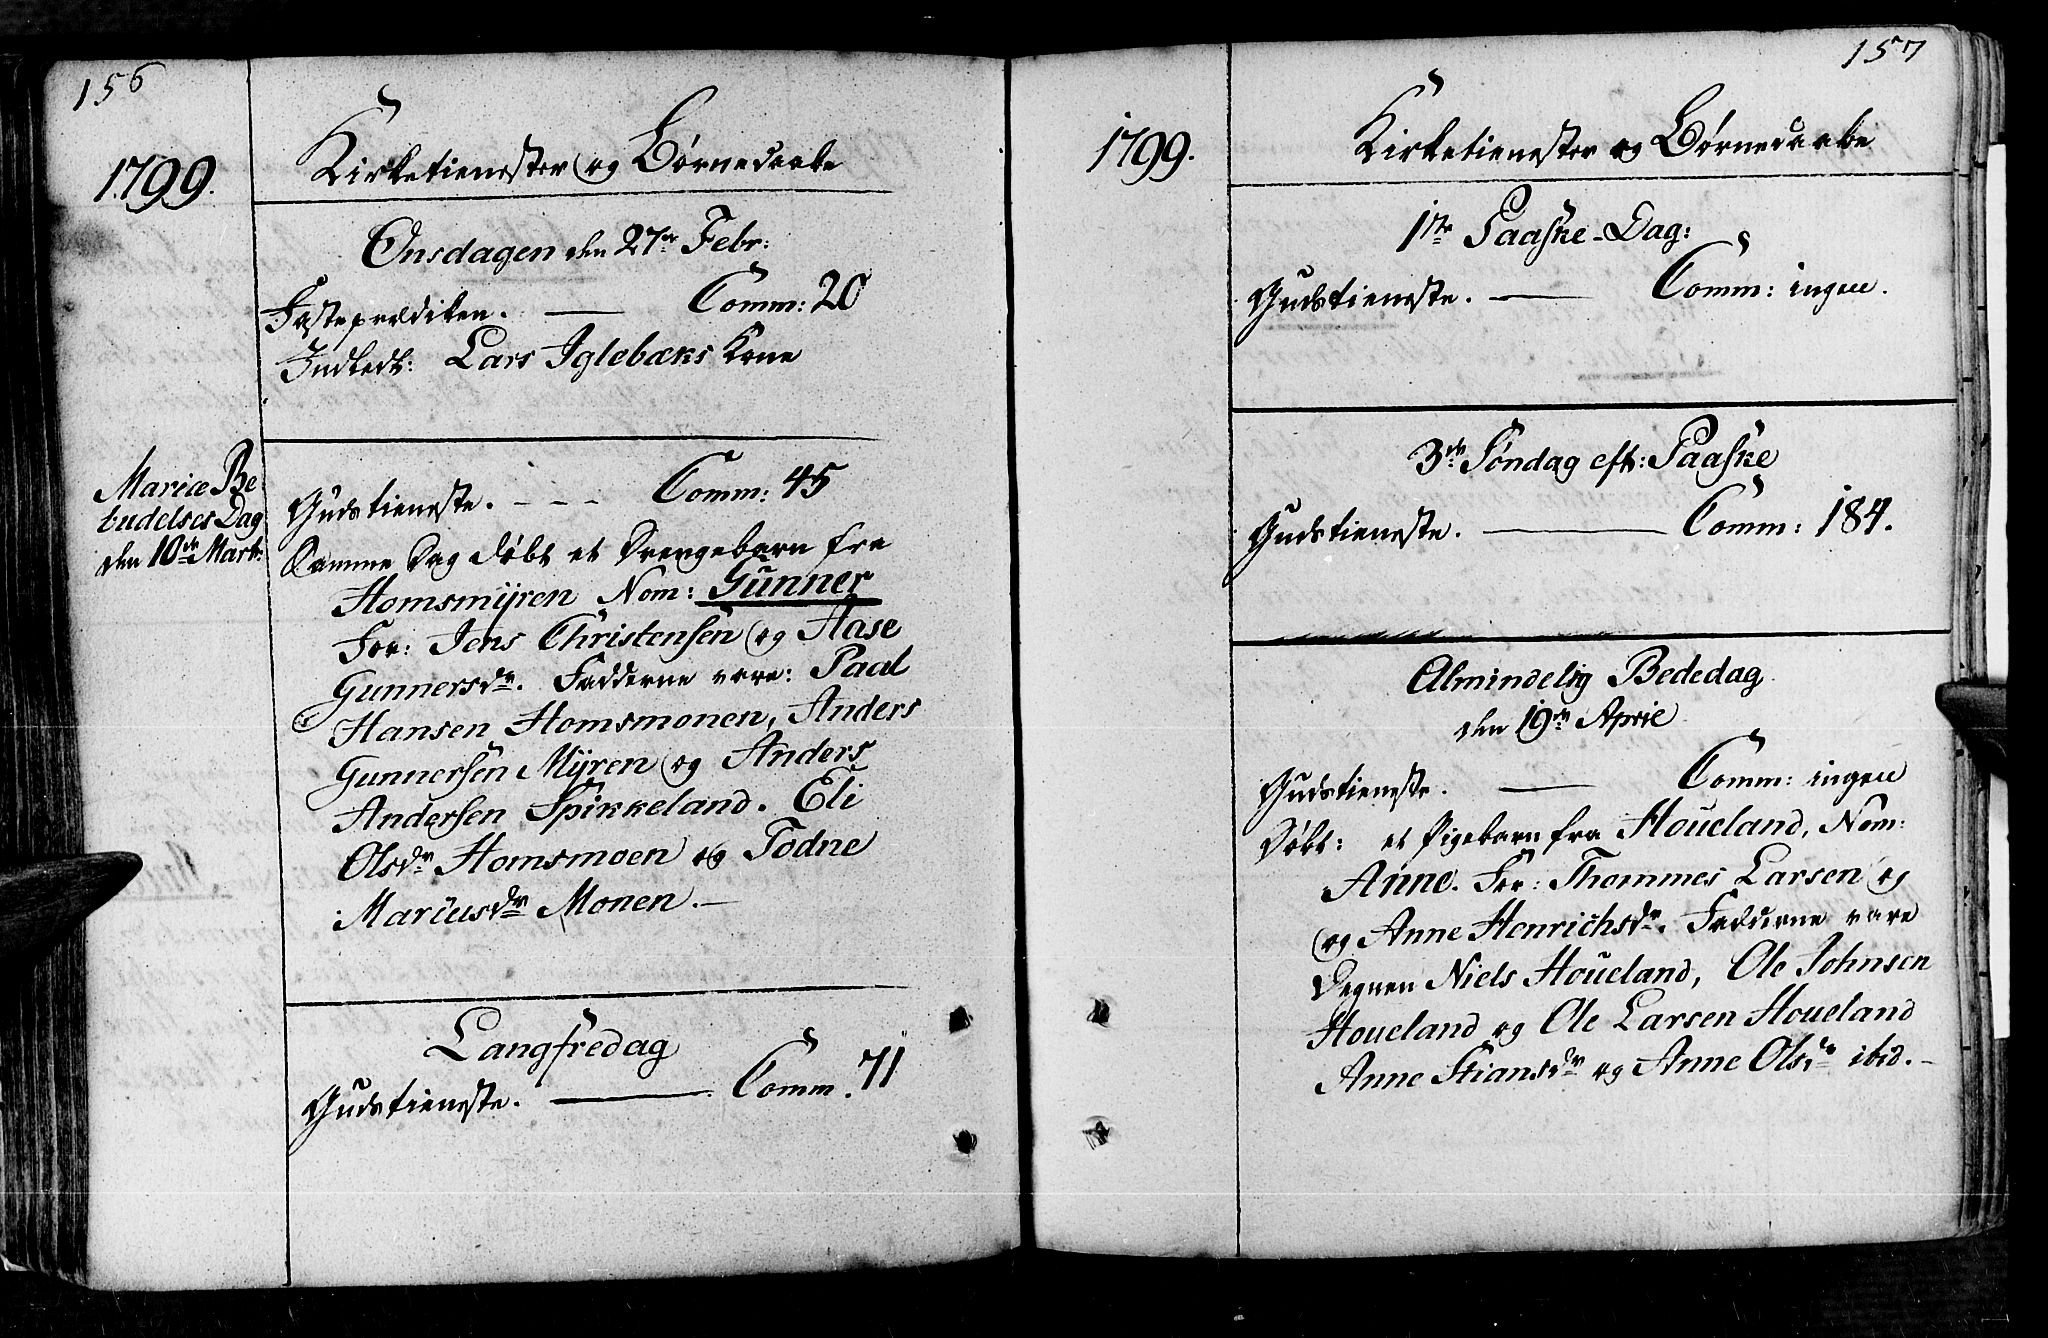 156
1799.
Kirketienester og Børnedaabe
Onsdagen den 27de Febr:
Fasteprædiken. — Comm: 20
Indledt: Lars Iglebæks Kone
Mariæ Be-
budelses Dag
den 10de Marti:
Gudstieneste. - - - Comm: 45
Samme Dag døbt et Drengebarn fra
Homsmyren Nom: Gunner
For: Jens Christensen og Aase
Gunnersdr. Fadderne vare: Paal
Hansen Homsmonen, Anders
Gunnersen Myren og Anders
Andersen Spikkeland. Eli
Olsdr Homsmoen og Todne
Marcusdr Monen. —
Langfredag
Gudstieneste. — Comm. 71
157
1799.
Kirketienester og Børnedaabe
1ste Paaske-Dag:
Gudstieneste. — Comm: ingen.
3de Søndag eft: Paaske
Gudstieneste. — Comm: 184.
Almindelig Bededag
den 19de April
Gudstieneste. — Comm: ingen
Døbt: et Pigebarn fra Houeland, Nom:
Anne. For: Thommes Larsen og
og Anne Henrichsdr. Fadderne vare
Degnen Niels Houeland, Ole Johnsen
Houeland og Ole Larsen Houeland
Anne Stiansdr og Anne Olsdr ibid. —